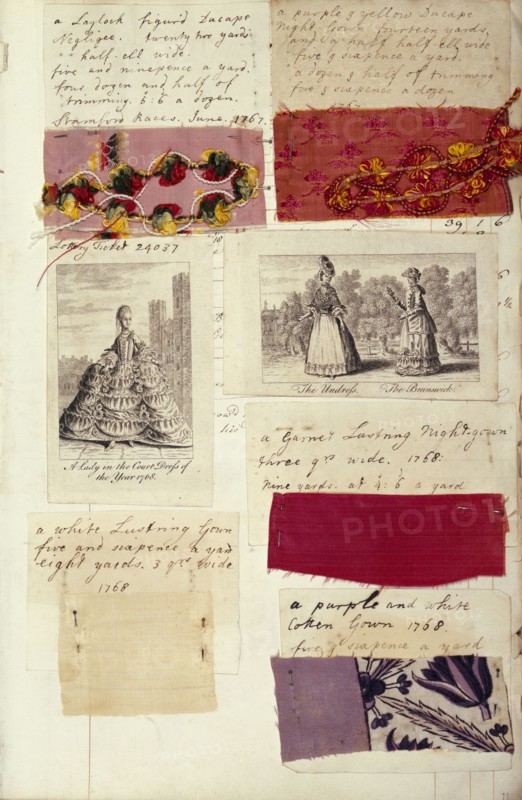 a Laylock figur'd Ducape
Negligee. twenty two yards
half-ell wide.
five and ninepence a yard.
four dozen and half of
trimming. 6:6 a dozen.
Stamford Races. June. 1767.
a purple & yellow Ducape
Night Gown fourteen yards,
and half half ell wide
five & sixepence a yard.
a dozen & half of trimming
five & sixepence a dozen
39 1 6
Lottery Ticket 24037
A Lady in the Court Dress of
the Year 1768.
The Undress. The Brunswick.
a Garnet Lustring Night-gown
three qrs wide. 1768.
Nine yards. at 4:6 a yard
a white Lustring Gown
five and sixpence a yard
eight yards. 3 qrs wide
1768
a purple and white
Cotton Gown 1768.
five & sixpence a yard
PHOTO12
PHOTO12
PHOTO12